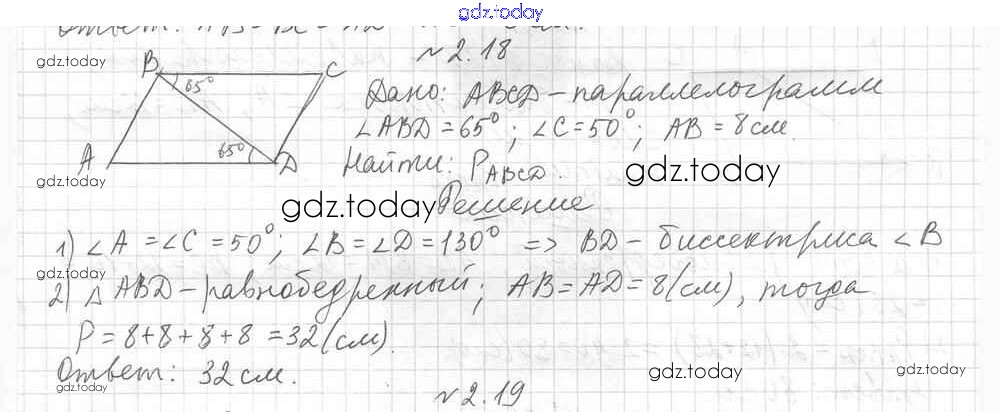 gdz.today
Ответ:
№2.18
gdz.today
B C
65°
Дано: ABCD - параллелограмм
∠ABD = 65°; ∠C = 50°; AB = 8 см.
65°
A D
Найти: P ABCD.
gdz.today
gdz.today
gdz.today
Решение
1) ∠A = ∠C = 50°; ∠B = ∠D = 130° => BD - биссектриса ∠B
gdz.today
2) △ABD - равнобедренный; AB = AD = 8 (см), тогда
P = 8 + 8 + 8 + 8 = 32 (см).
Ответ: 32 см.
gdz.today
gdz.today
gdz.today
№2.19